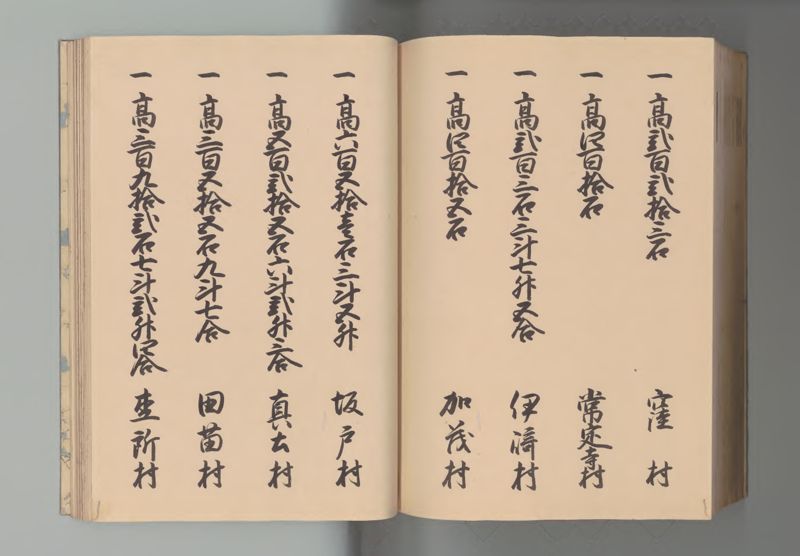 一 高弐百弐拾三石 窪村
一 高四百拾石 常定寺村
一 高弐百三石三斗七升五合 伊崎村
一 高四百拾五石 加茂村
一 高六百五拾壱石三斗五升 坂戸村
一 高五百弐拾五石六斗弐升三合 真土村
一 高三百五拾五石九斗七合 田苗村
一 高三百九拾弐石七斗弐升四合 所村